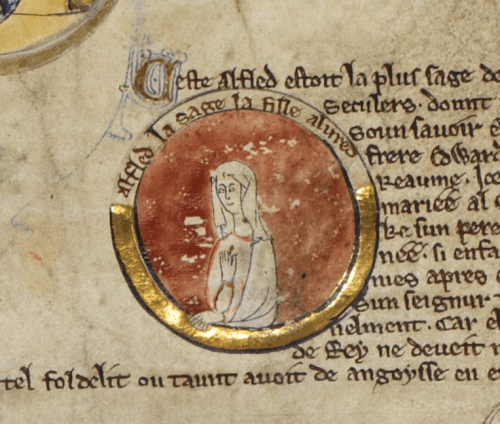 Ceste Alfled estoit la plus sage de
seculers. dount
alfled la sage la fille alured
soun sauoir
frere Edward
Reaume. Ice
mariee al
ke sun pere
nee. si enfa
mes apres
sun seignur.
nelment. Car el
de Rey ne deueit
tel foldelit ou taunt auoit de angoysse en